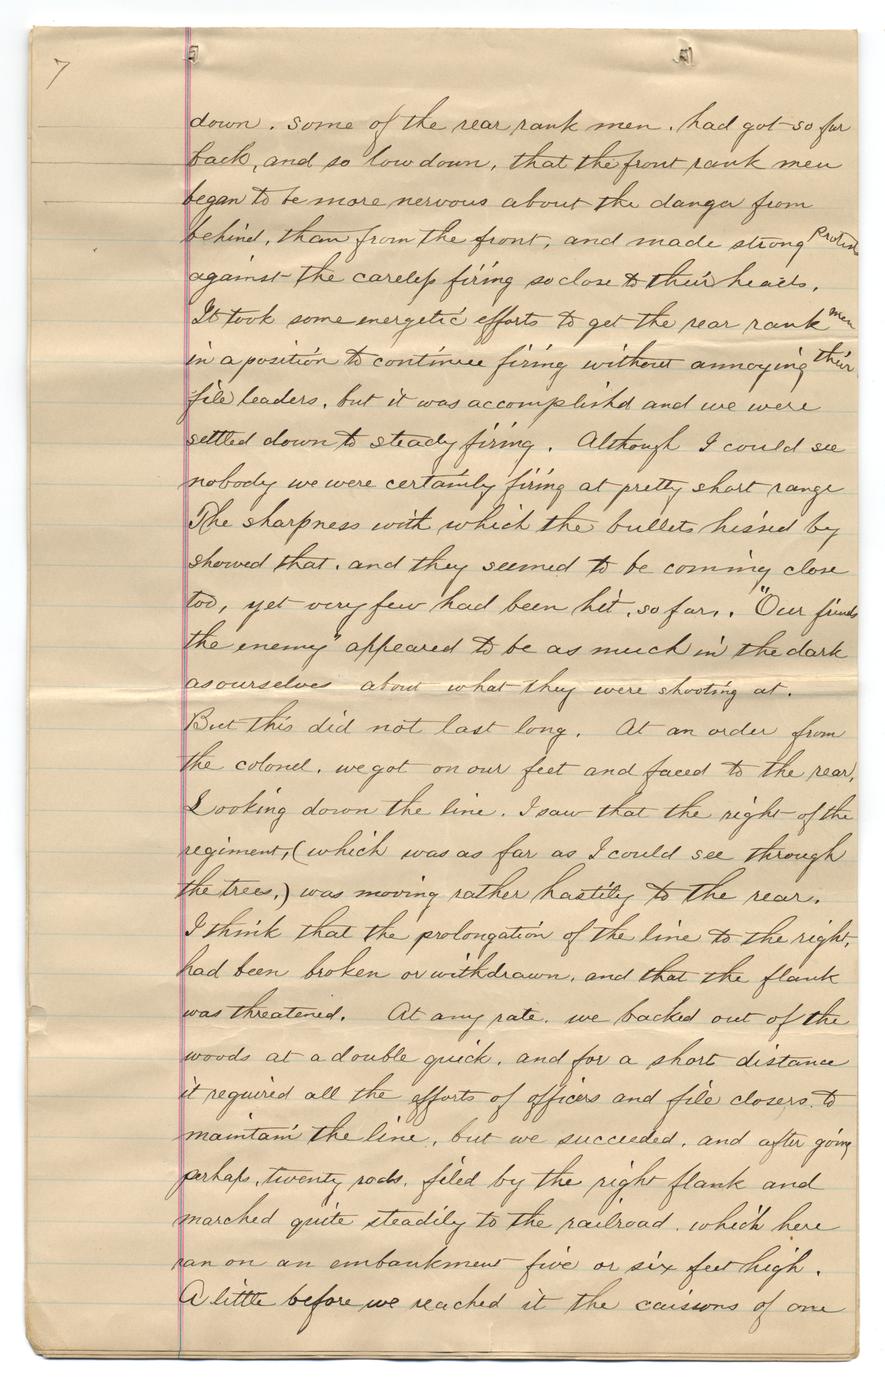 7
down. some of the rear rank men. had got so far
back, and so low down, that the front rank men
began to be more nervous about the danger from
behind, than from the front, and made strong protests
against the careless firing so close to their heads.
It took some energetic efforts to get the rear rank men
in a position to continue firing without annoying their
file leaders, but it was accomplishd and we were
settled down to steady firing. Although I could see
nobody we were certainly firing at pretty short range
The sharpness with which the bullets hissed by
showed that. and they seemed to be coming close
too, yet very few had been hit, so far,. "Our friends
the enemy" appeared to be as much in the dark
as ourselves about what they were shooting at.
But this did not last long. At an order from
the colonel. we got on our feet and faced to the rear,
Looking down the line. I saw that the right of the
regiment, (which was as far as I could see through
the trees,) was moving rather hastily to the rear.
I think that the prolongation of the line to the right,
had been broken or withdrawn, and that the flank
was threatened. At any rate. we backed out of the
woods at a double quick. and for a short distance
it required all the efforts of officers and file closers to
maintain the line, but we succeeded. and after going
perhaps, twenty rods. filed by the right flank and
marched quite steadily to the railroad. which here
ran on an embankment five or six feet high.
A little before we reached it the caissons of one